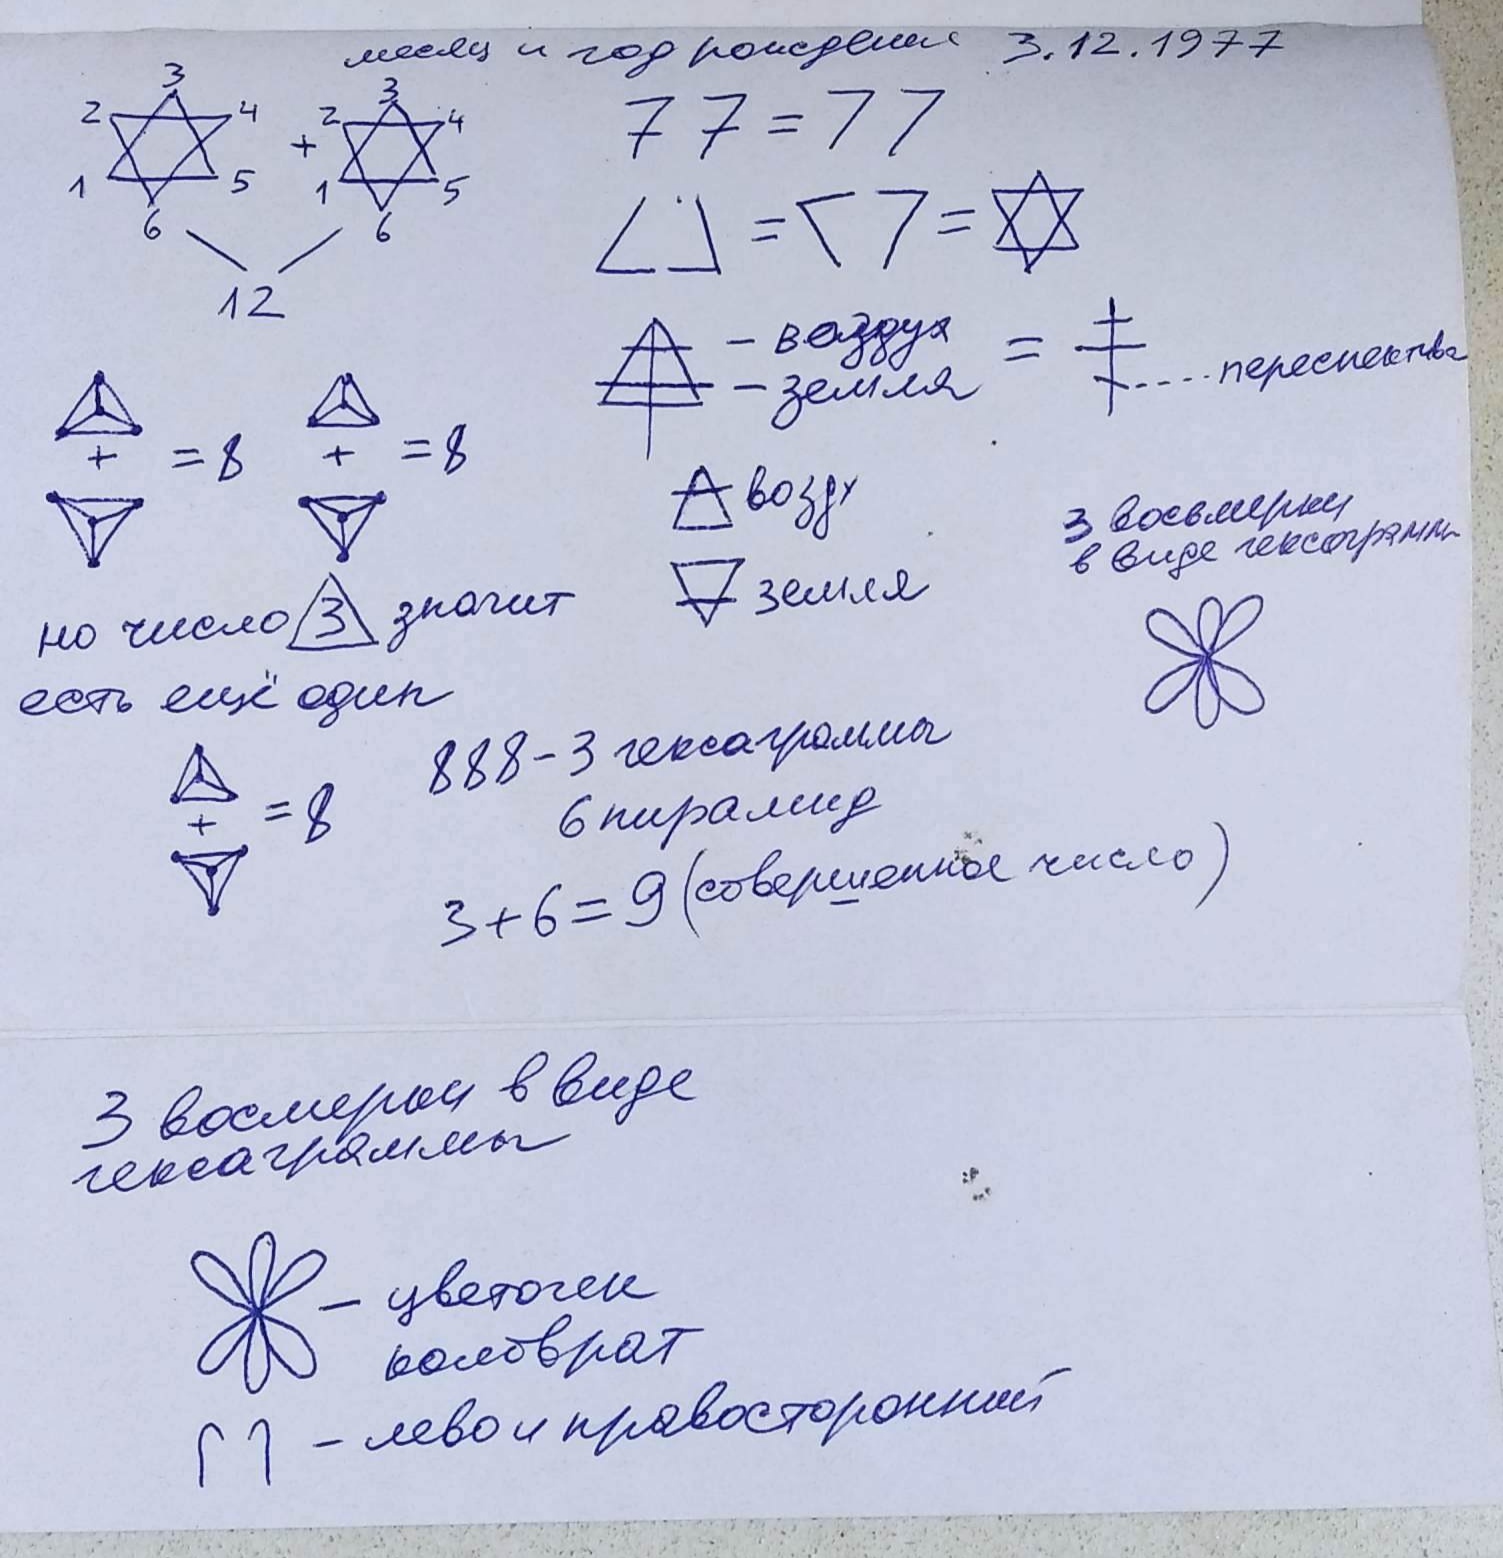 месяц и год рождения 3.12.1977
3 3
2 4 + 2 4
1 5 1 5
6 6
12
77=77
= =
- воздух =
- земля
.... переспектива
+ =8 + =8
воздух
земля
3 восьмерки
в виде гексограммы
но число 3 значит
есть ещё один
+ =8
888-3 гексаграммы
6 пирамид
3+6=9 (совершенное число)
3 восмерки в виде
гексаграммы
- цветочек
коловрат
- лево и правосторонний